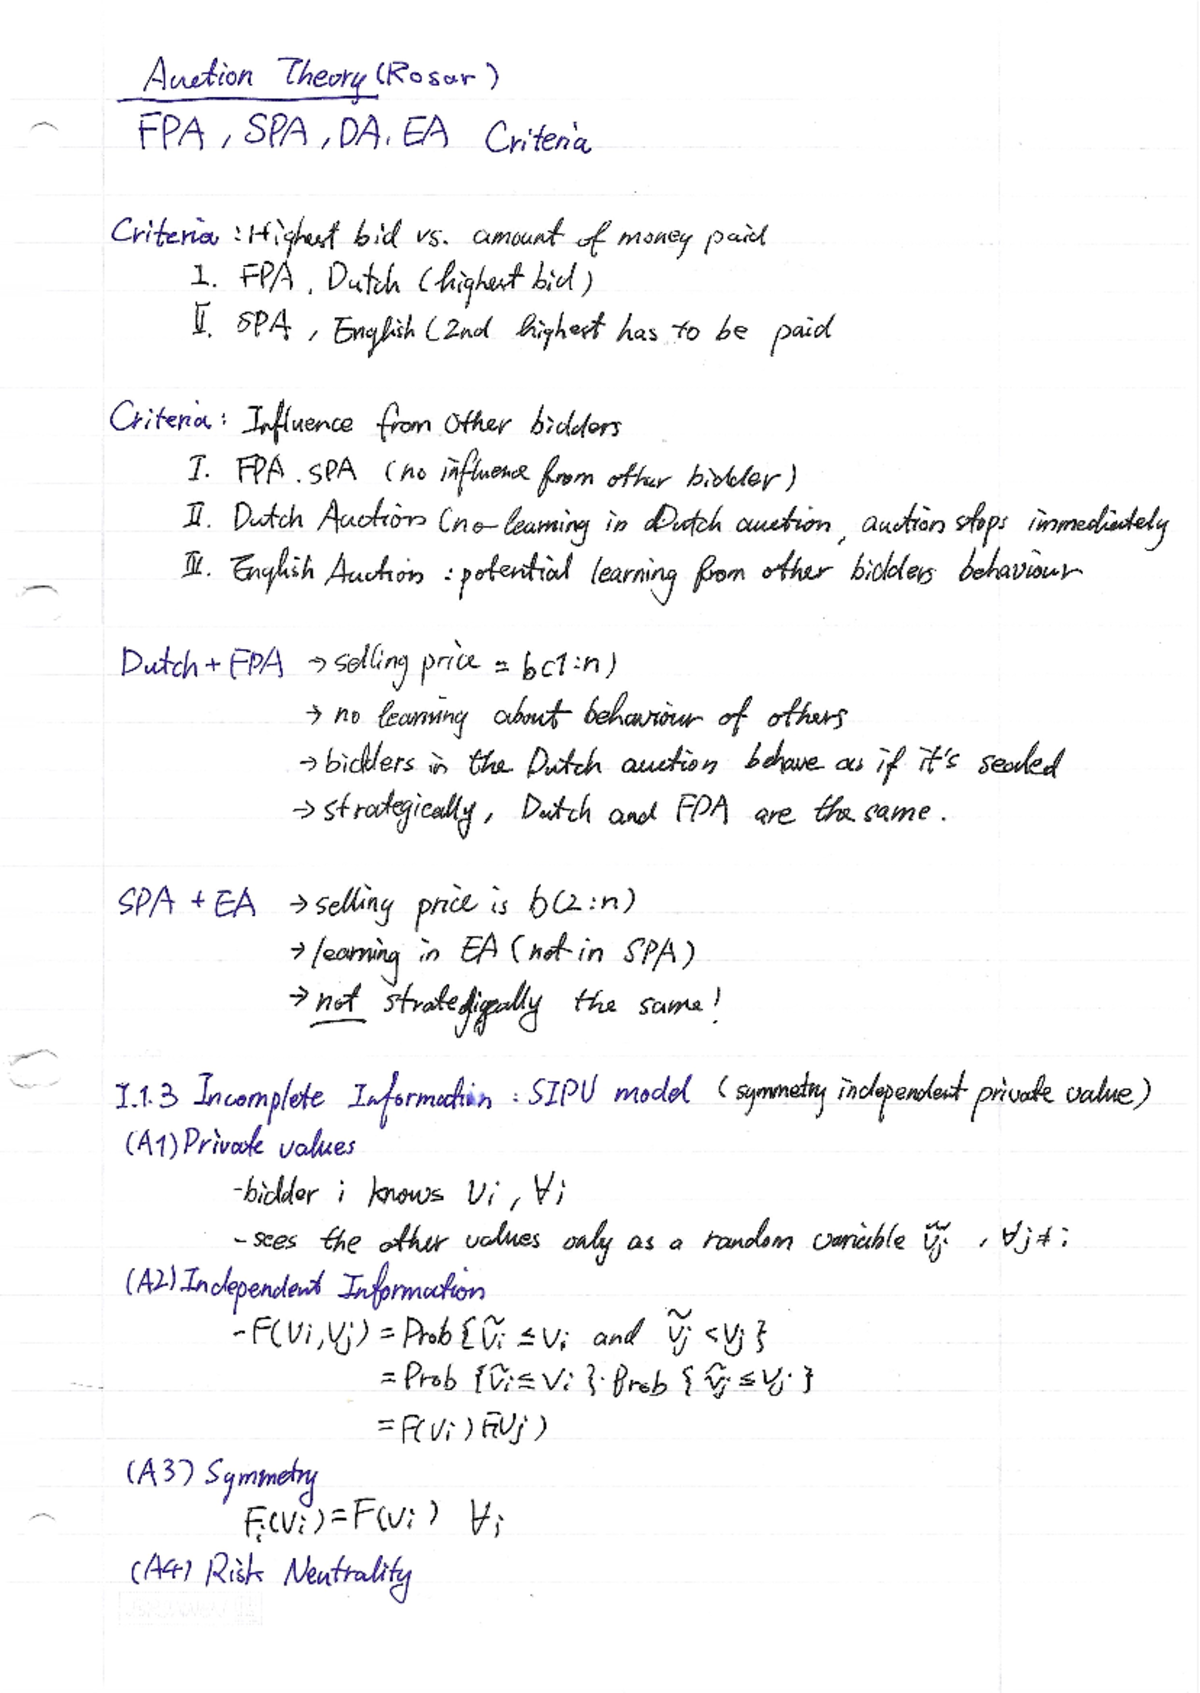 Auction Theory (Rosar)
FPA, SPA, DA, EA Criteria
Criteria: Highest bid vs. amount of money paid
I. FPA, Dutch (highest bid)
II. SPA, English (2nd highest has to be paid
Criteria: Influence from other bidders
I. FPA. SPA (no influence from other bidder)
II. Dutch Auction (no learning in Dutch auction, auction stops immediately
III. English Auction: potential learning from other bidders behaviour
Dutch + FPA → selling price = b(1:n)
→ no learning about behaviour of others
→ bidders in the Dutch auction behave as if it's sealed
→ strategically, Dutch and FPA are the same.
SPA + EA → selling price is b(2:n)
→ learning in EA (not in SPA)
→ not strategically the same!
I.1.3 Incomplete Information: SIPU model (symmetry independent private value)
(A1) Private values
- bidder i knows vi, ∀i
- sees the other values only as a random variable ṽj, ∀j≠i
(A2) Independent Information
- F(vi,vj) = Prob{ṽi ≤ vi and ṽj < vj}
= Prob{ṽi ≤ vi}·Prob{ṽj ≤ vj}
= F(vi) F(vj)
(A3) Symmetry
Fi(vi) = F(vi) ∀i
(A4) Risk Neutrality